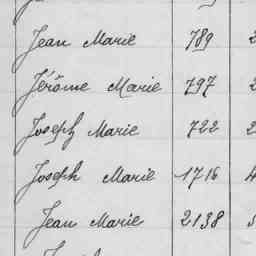 Jean Marie 789 2
Jérôme Marie 797 2
Joseph Marie 722 2
Joseph Marie 1716 4
Jean Marie 2138 5